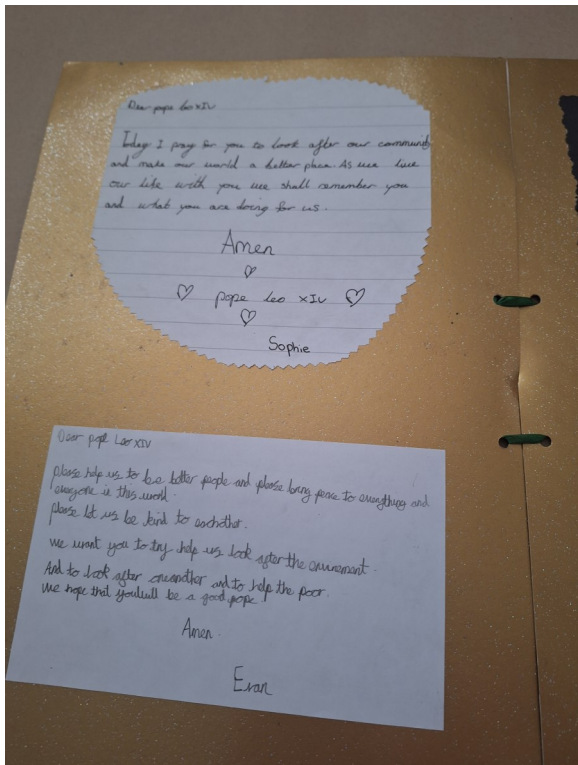 Dear pope leo XIV
Today I pray for you to look after our community
and make our world a better place. As we live
our life with you we shall remember you
and what you are doing for us.
Amen
pope leo XIV
Sophie
Dear pope Leo XIV
please help us to be a better people and please bring peace to everything and
everyone in this world.
please let us be kind to eachother.
we want you to try help us look after the envirement.
And to look after oneanother and to help the poor.
we hope that you will be a good pope!
Amen.
Evan